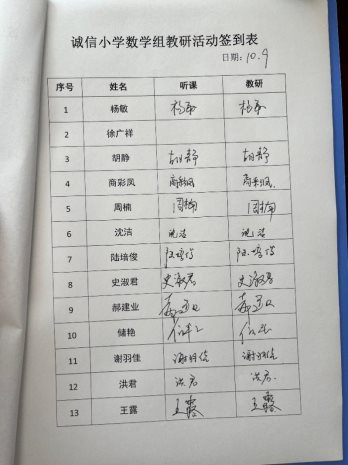 诚信小学数学组教研活动签到表
日期：10.9
序号 姓名 听课 教研
1 杨敏 杨敏 杨敏
2 徐广祥
3 胡静 胡静 胡静
4 商彩凤 商彩凤 商彩凤
5 周楠 周楠 周楠
6 沈洁 沈洁 沈洁
7 陆培俊 陆培俊 陆培俊
8 史淑君 史淑君 史淑君
9 郝建业 郝建业 郝建业
10 储艳
11 谢羽佳 谢羽佳 谢羽佳
12 洪君 洪君 洪君
13 王露 王露 王露